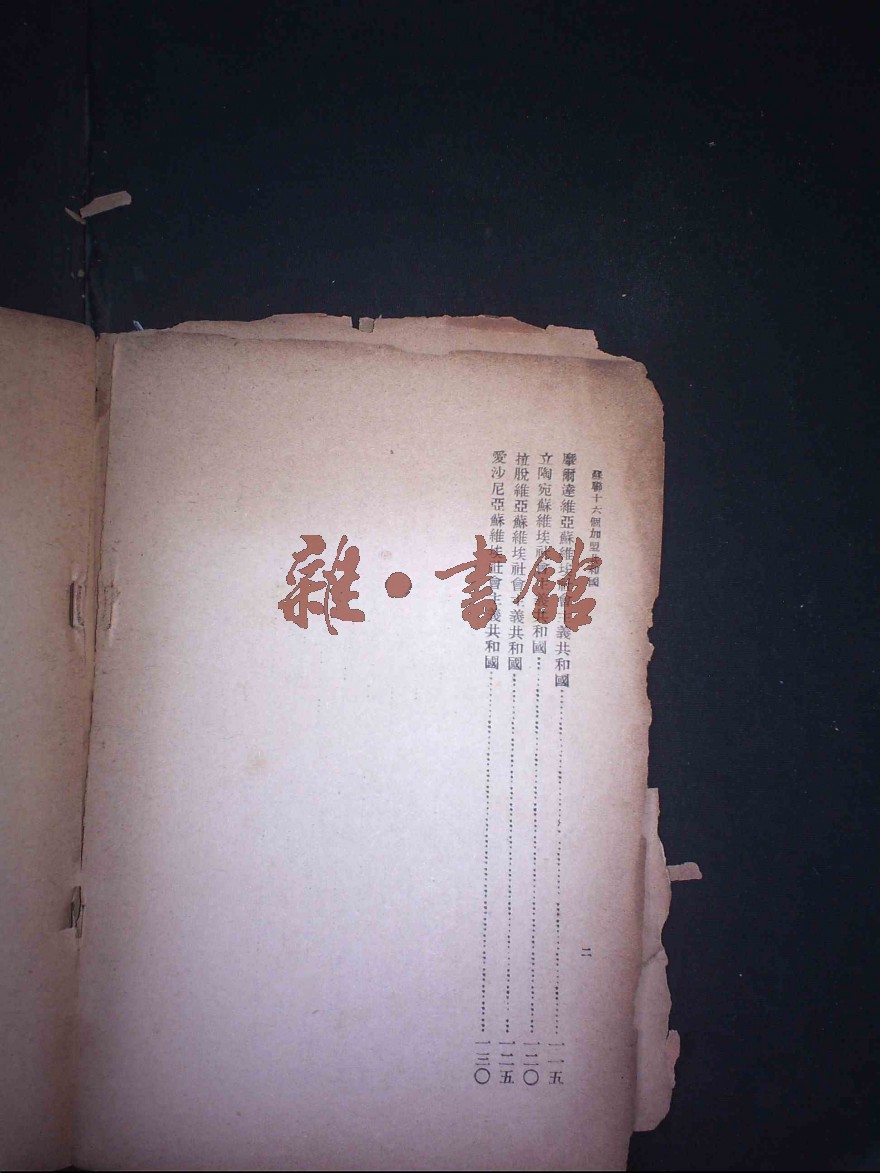 蘇聯十六個加盟共和國
二
摩爾達維亞蘇維埃社會主義共和國……一一五
立陶宛蘇維埃社會主義共和國……一二〇
拉脫維亞蘇維埃社會主義共和國……一二五
愛沙尼亞蘇維埃社會主義共和國……一三〇
雜·書館